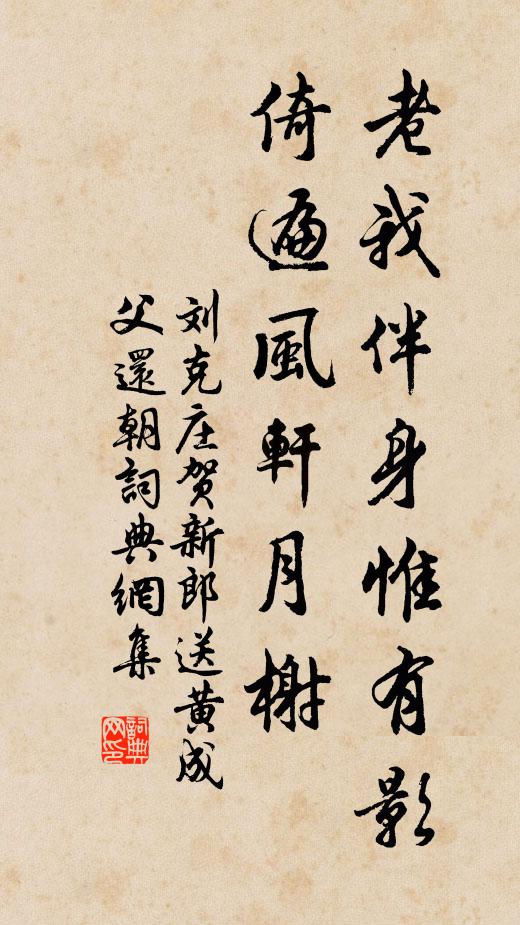 老我伴身惟有影
倚遍風軒月榭
刘克庄贺新郎送黄成
父還朝詞典網集
詞典網印